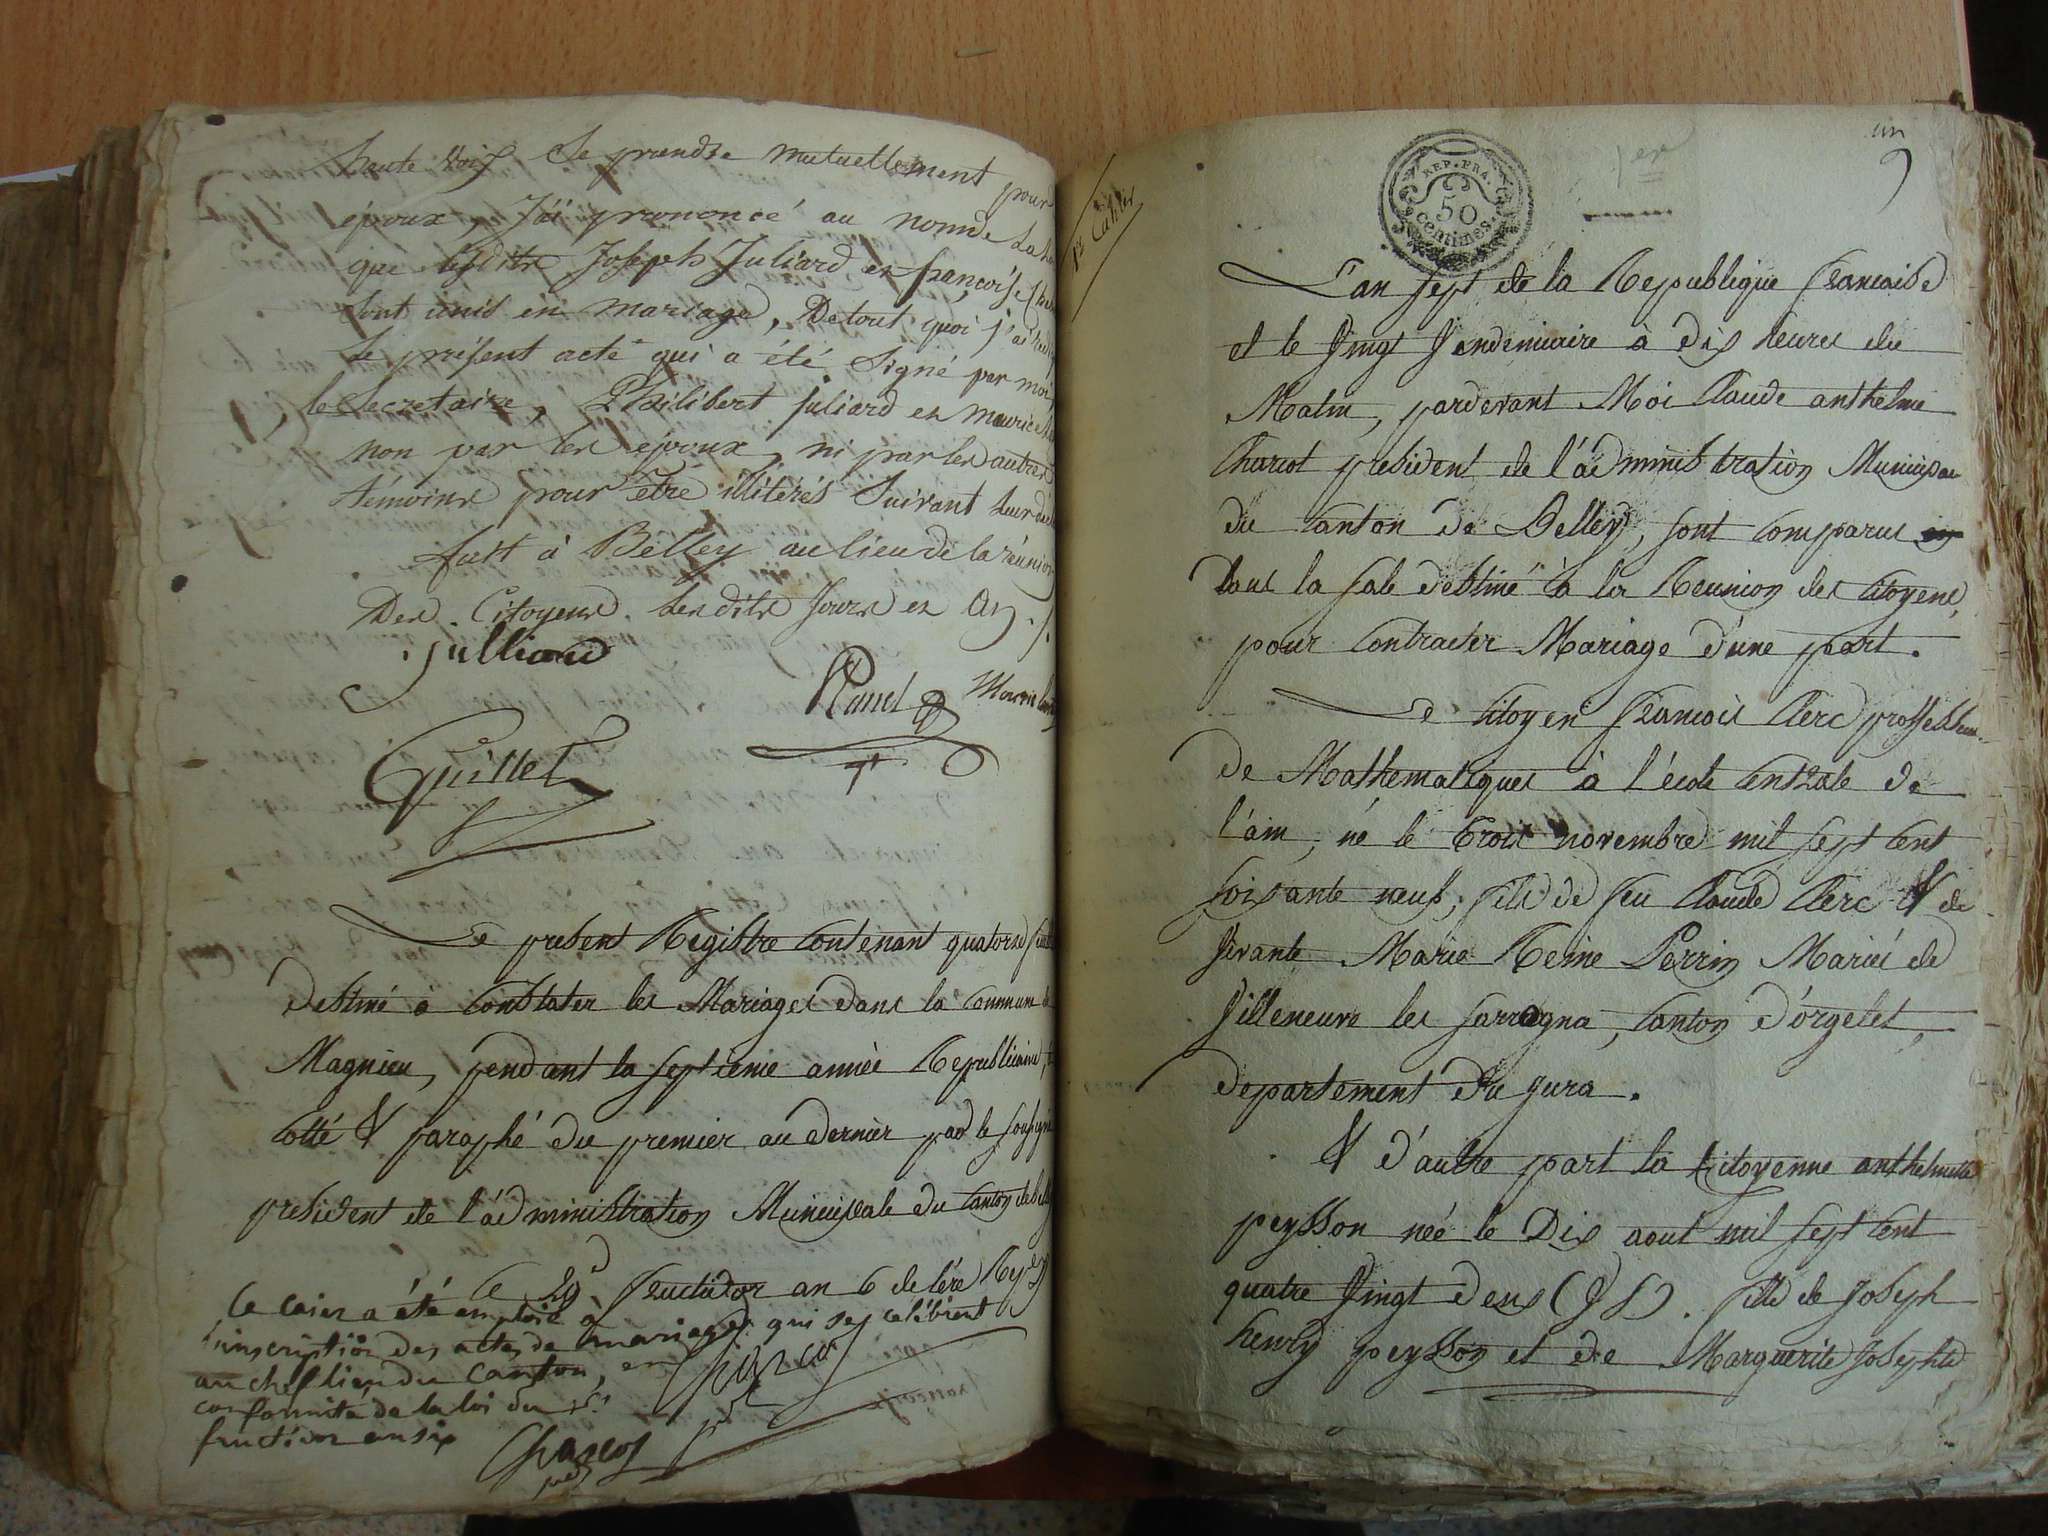 haute voix de prendre mutuellement pour
époux, J'ai prononcé au nom de La
que lesdits Joseph Juliard et françoise
sont unis en mariage, De tout quoi j'ai
le présent acte qui a été signé par moi
le Secretaire, Philibert juliard et maurice
non par les époux, ni par les autres
témoins pour être illiterés suivant leur
fait à Belley au lieu de la réunion
Des Citoyens. Les dits Jours et an.
Julliard
Guillet
Le present Registre Contenant quatorse
Destiné à Constater les Mariages dans la Commune de
Magnieu, pendant la septieme année Republicaine,
Cotté & paraphé du premier au dernier par le soussigné
president de l'administration Municipale du Canton de
Ce 29 fructidor an 6 de l'ére
Ce caier a été emploié à
l'inscription des actes de mariages qui se celébrent
au chef lieu du Canton, en
conformité de la loi du
fructidor an six
Charcot
Cahier
un
1er
REP. FRA.
50
centimes.
L'an sept de la Republique francaise
et le Vingt Vendemiaire à dix heures du
Matin, pardevant Moi Claude anthelme
Charcot president de l'administration Municipale
du Canton de Belley, sont comparus
Dans la sale destiné à la Reunion des Citoyens,
pour Contracter Mariage d'une part.
Le Citoyen francois Clerc professeur
de Mathematiques à l'école Centrale de
l'ain, né le trois novembre mil sept Cent
soixante neuf, fils de feu Claude Clerc & de
Vivante Marie Reine Perrin Mariés de
Villeneuve les sarrogna, Canton d'orgelet,
departement du jura.
& d'autre part la Citoyenne anthelmette
peysson née le Dix aout mil sept Cent
quatre Vingt deux (V S). fille de Joseph
henry peysson et de Marguerite Josephte